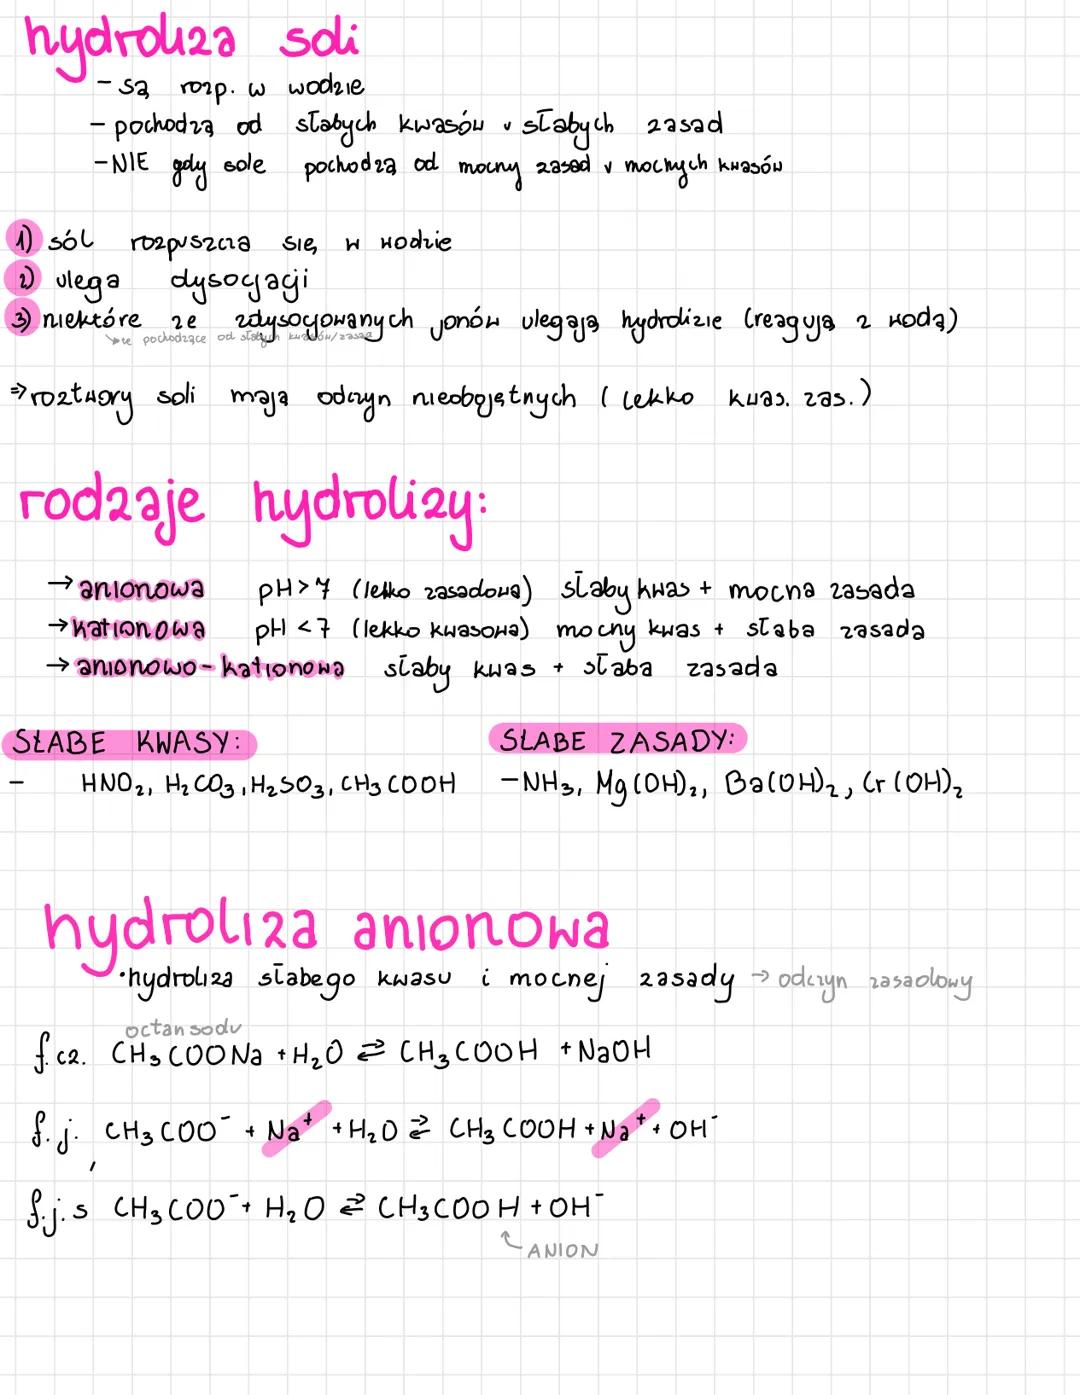 hydroliza soli
- są rozp. w wodzie
- pochodzą od słabych kwasów v słabych zasad
- NIE gdy sole pochodzą od mocny zasad v mocnych kwasów
1) sól rozpuszcza się w wodzie
2) ulega dysocjacji
3) niektóre ze zdysocjowanych jonów ulegają hydrolizie (reagują z wodą)
↳ te pochodzące od słabych kwasów/zasad
⇒ roztwory soli mają odczyn nieobojętnych (lekko kwas. zas.)
rodzaje hydrolizy:
→ anionowa pH > 7 (lekko zasadowa) słaby kwas + mocna zasada
→ kationowa pH < 7 (lekko kwasowa) mocny kwas + słaba zasada
→ anionowo-kationowa słaby kwas + słaba zasada
SŁABE KWASY: SŁABE ZASADY:
- HNO₂, H₂CO₃, H₂SO₃, CH₃COOH - NH₃, Mg(OH)₂, Ba(OH)₂, Cr(OH)₂
hydroliza anionowa
• hydroliza słabego kwasu i mocnej zasady → odczyn zasadowy
octan sodu
f. cz. CH₃COONa + H₂O ⇄ CH₃COOH + NaOH
f. j. CH₃COO⁻ + Na⁺ + H₂O ⇄ CH₃COOH + Na⁺ + OH⁻
f.j.s CH₃COO⁻ + H₂O ⇄ CH₃COOH + OH⁻
ANION